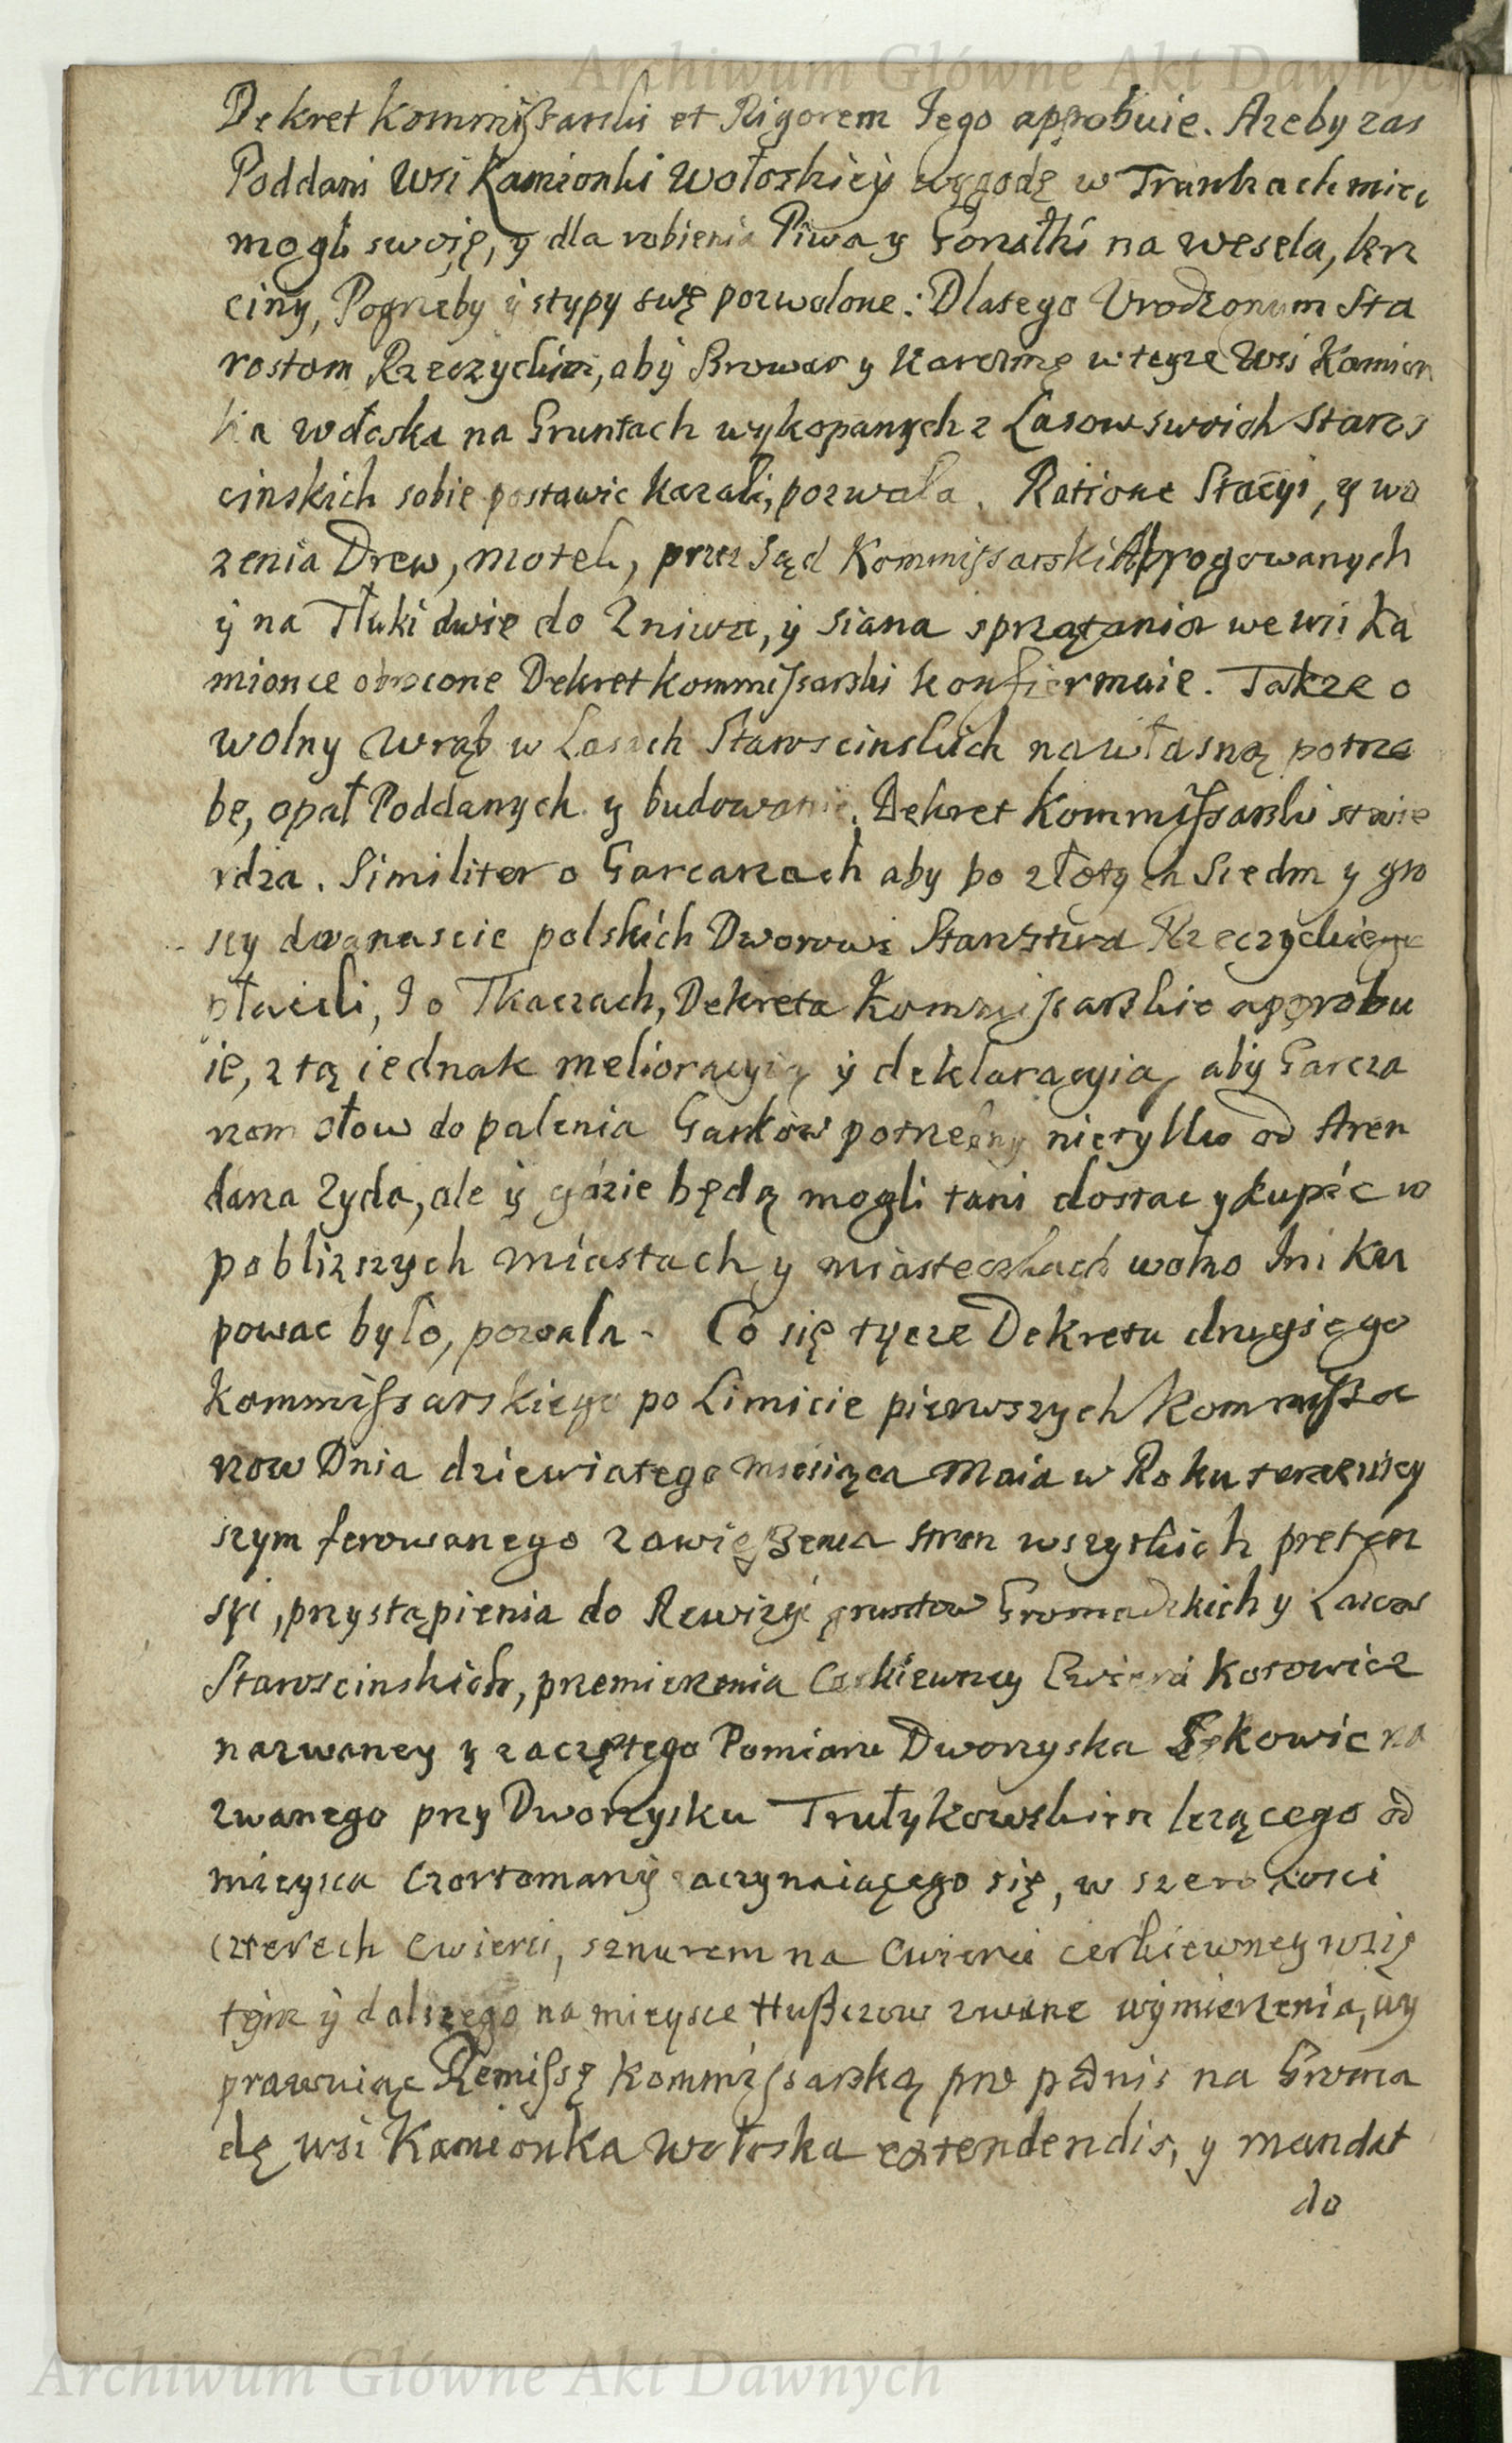 Archiwum Główne Akt Dawnych
Dekret Kommissarski et Rigorem Jego approbuie. Azeby zas
Poddani Wsi Kamionki Wołoskiey wygodę w Trunkach miec
mogli swoię, y dla robienia Piwa y Gorzałki na wesela, krz
ciny, Pogrzeby y stypy swę pozwolone: Dlatego Urodzonym Sta
rostom Rzeczyckim, aby Browar y Karczmę w teyze Wsi Kamion
ka Wołoska na Gruntach wykopanych z Lasow swoich Staros
cinskich sobie postawic kazali, pozwala. Ratione Stacyi, y wo
zenia Drew, motek, przez Sąd Kommissarski Abrogowanych
y na Tłuki dwie do Zniwa, y siana sprzątania we wsi Ka
mionce obrocone Dekret Kommissarski konfirmuie. Takze o
wolny Wrąb w Lasach Staroscinskich na własną potrze
be, opał Poddanych y budowanie, Dekret Kommissarski stwie
rdza. Similiter o Garcarzach aby po złotych Siedm y gro
szy dwanascie polskich Dworowi Starostwa Rzeczyckiego
płacili, I o Tkaczach, Dekreta Kommissarskie approbu
ie, z tą iednak melioracyią y deklaracyią, aby Garcza
rzom ołow do palenia Garkow potrzebny nietylko od Aren
darza Zyda, ale y gdzie będą mogli tani dostac y kupic w
poblizszych miastach y miasteczkach wolno Im ku
powac było, pozwala. Co się tycze Dekretu drugiego
Kommissarskiego po Limicie pierwszych Kommissa
rzow Dnia dziewiatego miesiąca Maia w Roku terazniey
szym ferowanego zawieszenia stron wszystkich preten
syi, przystąpienia do Rewizyi gruntow Gromadzkich y Lasow
Staroscinskich, przemierzenia Cerkiewney Cwierci Kotowicz
nazwaney y zaczętego Pomiaru Dworzyska Sękowic na
zwanego przy Dworzysku Trutykowskim lezącego od
mieysca Czortomany zaczynaiącego się, w szerokosci
czterech cwierci, sznurem na cwierci cerkiewney wzię
tym y dalszego na mieysce Hußczow zwane wymierzenia, wy
prawuiąc Remissę Kommissarską pro pednis na Groma
dę wsi Kamionka Wołoska extendendis, y mandat
do
Archiwum Główne Akt Dawnych